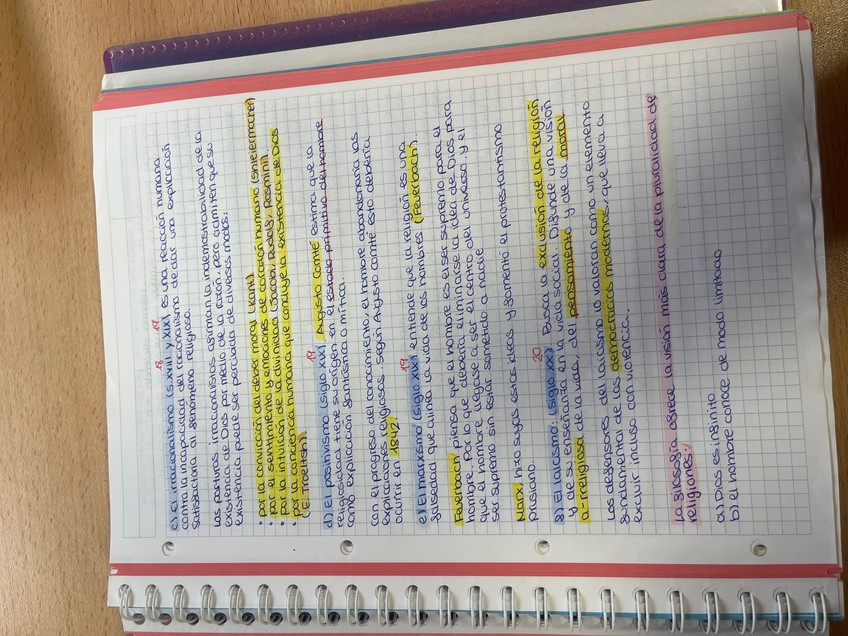 18 19
c) El irracionalismo (s.XVIII y XIX) es una reacción humana
contra la incapacidad del racionalismo de dar una explicación
satisfactoria al fenómeno religioso.
Las posturas irracionalistas afirman la indemostrabilidad de la
existencia de Dios por medio de la razón, pero admiten que su
existencia puede ser percibida de diversos modos:
• por la convicción del deber moral (Kant)
• por el sentimiento y emociones de corazón humano (Shleiermcher)
• por la intuición de la divinidad (Jacobi, Rosmini).
• por la conciencia humana que concluye la existencia de Dios
(E. Troeltsh).
19
d) El positivismo (siglo XIX). Augusto Comte estima que la
religiosidad tiene su origen en el estado primitivo del hombre
como explicación fantástica o mítica.
Con el progreso del conocimiento, el hombre abandonaría las
explicaciones religiosas. Según Augusto Comte esto debería
ocurrir en 1842.
19
e) El marxismo (siglo XIX) entiende que la religión es una
falsedad que aliena la vida de los hombres (Feuerbach)
Feuerbach piensa que el hombre es el ser supremo para el
hombre. Por lo que debería eliminarse la idea de Dios para
que el hombre llegase a ser el centro del universo y el
ser supremo sin estar sometido a nadie
Marx hizo suyas estas ideas y fomentó el protestantismo
prusiano.
20
f) El laicismo: (siglo XX) Busca la exclusión de la religión
y de su enseñanza en la vida social. Difunde una visión
a-rreligiosa de la vida, del pensamiento y de la moral.
Los defensores del laicismo lo valoran como un elemento
fundamental de las democracias modernas, que lleva a
excluir incluso con violencia.
La filosofía ofrece la visión más clara de la pluralidad de
religiones:
a) Dios es infinito
b) el hombre conoce de modo limitado